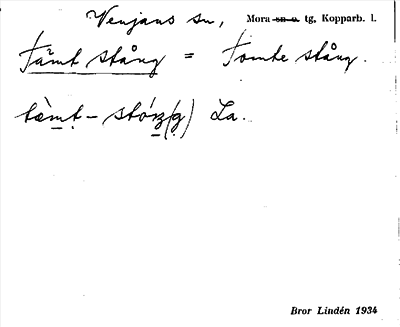 Venjans sn, Mora sn o. tg, Kopparb. l.
Tämt stång = Tomte stång.
tæ̀mt – stóŋ(g) La.
Bror Lindén 1934